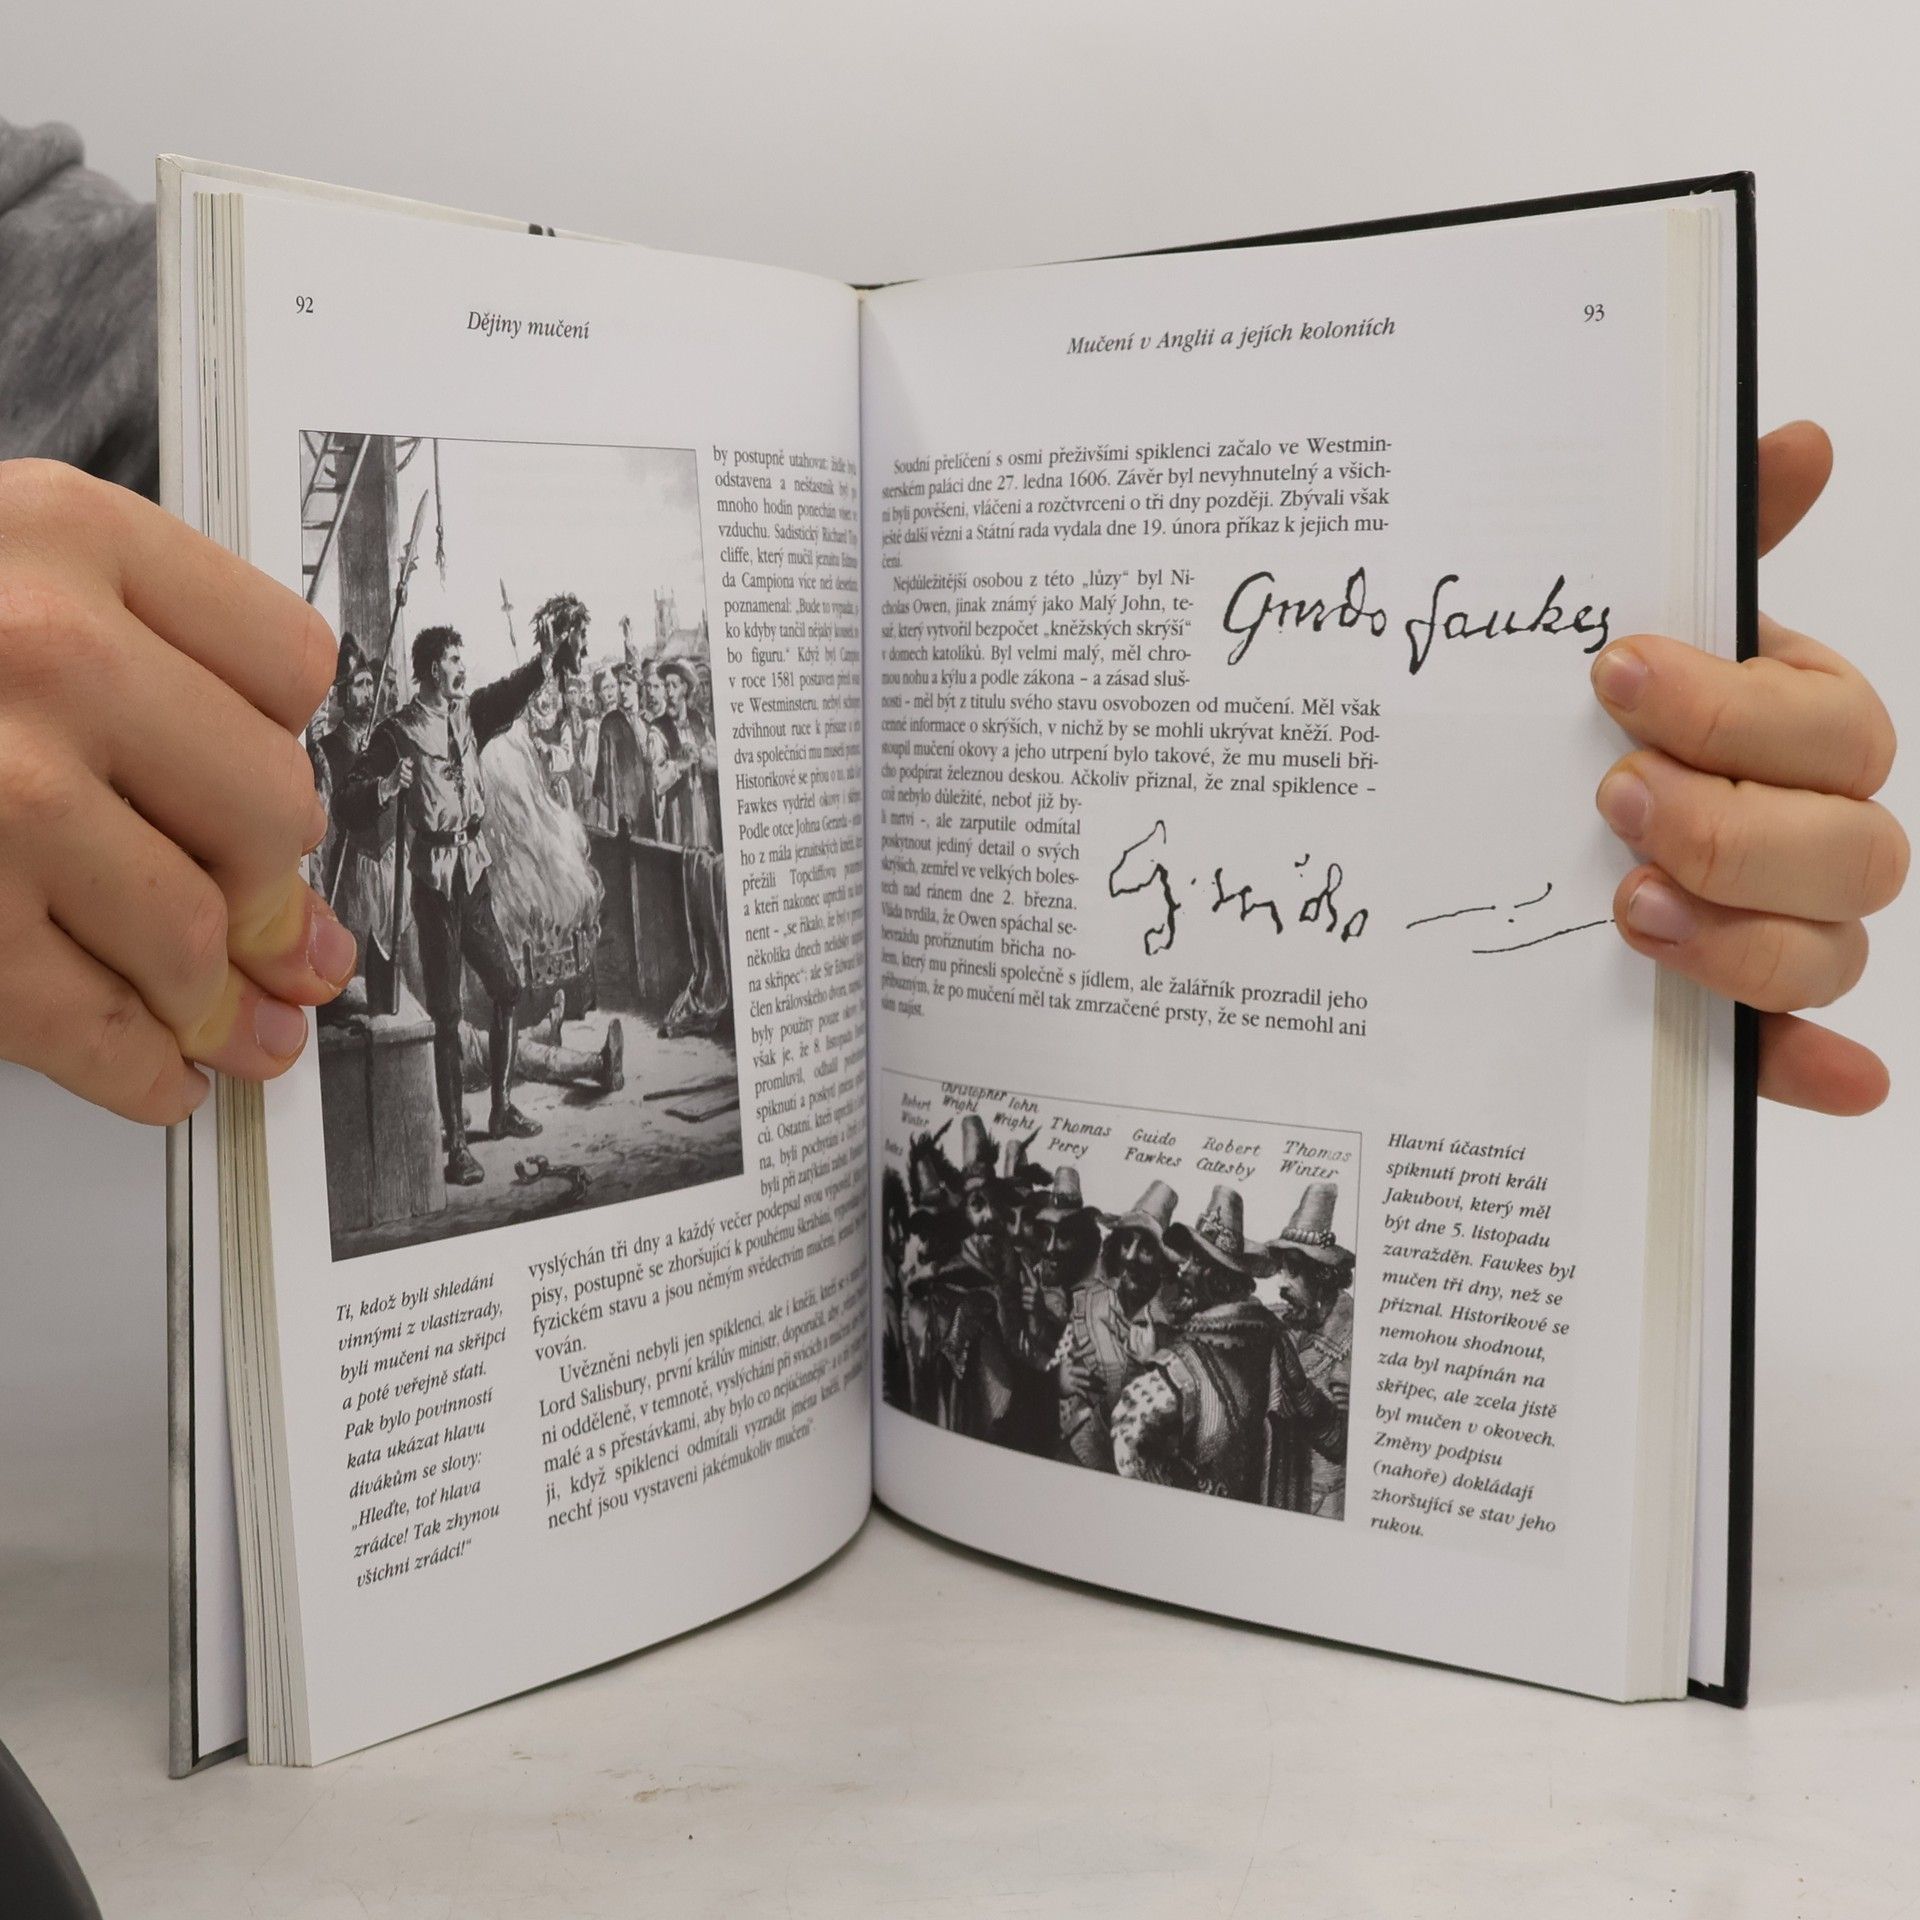 92
Dějiny mučení
by postupně utahovat
odstavena a nešťastník
mnoho hodin ponechán
vzduchu. Sadistický Richard Top
cliffe, který mučil jezuitu
da Campiona více než
poznamenal: „Bude to
ko kdyby tančil nějaký
bo figuru.“ Když byl
v roce 1581 postaven před
ve Westminsteru, nebyl
zdvihnout ruce k přísaze
dva společníci mu museli
Historikové se přou o to,
Fawkes vydržel okovy i
Podle otce Johna Gerarda
ho z mála jezuitských kněží,
přežili Topcliffovu
a kteří nakonec uprchli
nent – „se říkalo, že byl v
několika dnech
na skřipec“; ale Sir Edward
člen královského dvora,
byly použity pouze okovy.
však je, že 8. listopadu
promluvil, odhalil
spiknutí a poskytl jména
ců. Ostatní, kteří uprchli
na, byli pochytáni a
byli při zatýkání zabiti.
vyslýchán tři dny a každý večer podepsal svou výpověď.
pisy, postupně se zhoršující k pouhému škrábání,
fyzickém stavu a jsou němým svědectvím mučení,
vován.
Uvězněni nebyli jen spiklenci, ale i kněží, kteří se s
Lord Salisbury, první králův ministr, doporučil, aby
ni odděleně, v temnotě, vyslýcháni při svících a mučeni
malé a s přestávkami, aby bylo co nejúčinnější“; a
ji, když spiklenci odmítali vyzradit jména kněží,
nechť jsou vystaveni jakémukoliv mučení“.
Ti, kdož byli shledáni
vinnými z vlastizrady,
byli mučeni na skřipci
a poté veřejně sťati.
Pak bylo povinností
kata ukázat hlavu
divákům se slovy:
„Hleďte, toť hlava
zrádce! Tak zhynou
všichni zrádci!“
93
Mučení v Anglii a jejích koloniích
Soudní přelíčení s osmi přeživšími spiklenci začalo ve Westmin-
sterském paláci dne 27. ledna 1606. Závěr byl nevyhnutelný a všich-
ni byli pověšeni, vláčeni a rozčtvrceni o tři dny později. Zbývali však
ještě další vězni a Státní rada vydala dne 19. února příkaz k jejich mu-
čení.
Nejdůležitější osobou z této „lůzy“ byl Ni-
cholas Owen, jinak známý jako Malý John, te-
sař, který vytvořil bezpočet „kněžských skrýší“
v domech katolíků. Byl velmi malý, měl chro-
mou nohu a kýlu a podle zákona – a zásad sluš-
nosti – měl být z titulu svého stavu osvobozen od mučení. Měl však
cenné informace o skrýších, v nichž by se mohli ukrývat kněží. Pod-
stoupil mučení okovy a jeho utrpení bylo takové, že mu museli bři-
cho podpírat železnou deskou. Ačkoliv přiznal, že znal spiklence –
což nebylo důležité, neboť již by-
li mrtví –, ale zarputile odmítal
poskytnout jediný detail o svých
skrýších, zemřel ve velkých boles-
tech nad ránem dne 2. března.
Vláda tvrdila, že Owen spáchal se-
bevraždu proříznutím břicha no-
žem, který mu přinesli společně s jídlem, ale žalářník prozradil jeho
příbuzným, že po mučení měl tak zmrzačené prsty, že se nemohl ani
sám najíst.
Guido Faukes
Guido
Robert
Winter
Christopher
Wright
John
Wright
Thomas
Percy
Guido
Fawkes
Robert
Catesby
Thomas
Winter
Hlavní účastníci
spiknutí proti králi
Jakubovi, který měl
být dne 5. listopadu
zavražděn. Fawkes byl
mučen tři dny, než se
přiznal. Historikové se
nemohou shodnout,
zda byl napínán na
skřipec, ale zcela jistě
byl mučen v okovech.
Změny podpisu
(nahoře) dokládají
zhoršující se stav jeho
rukou.